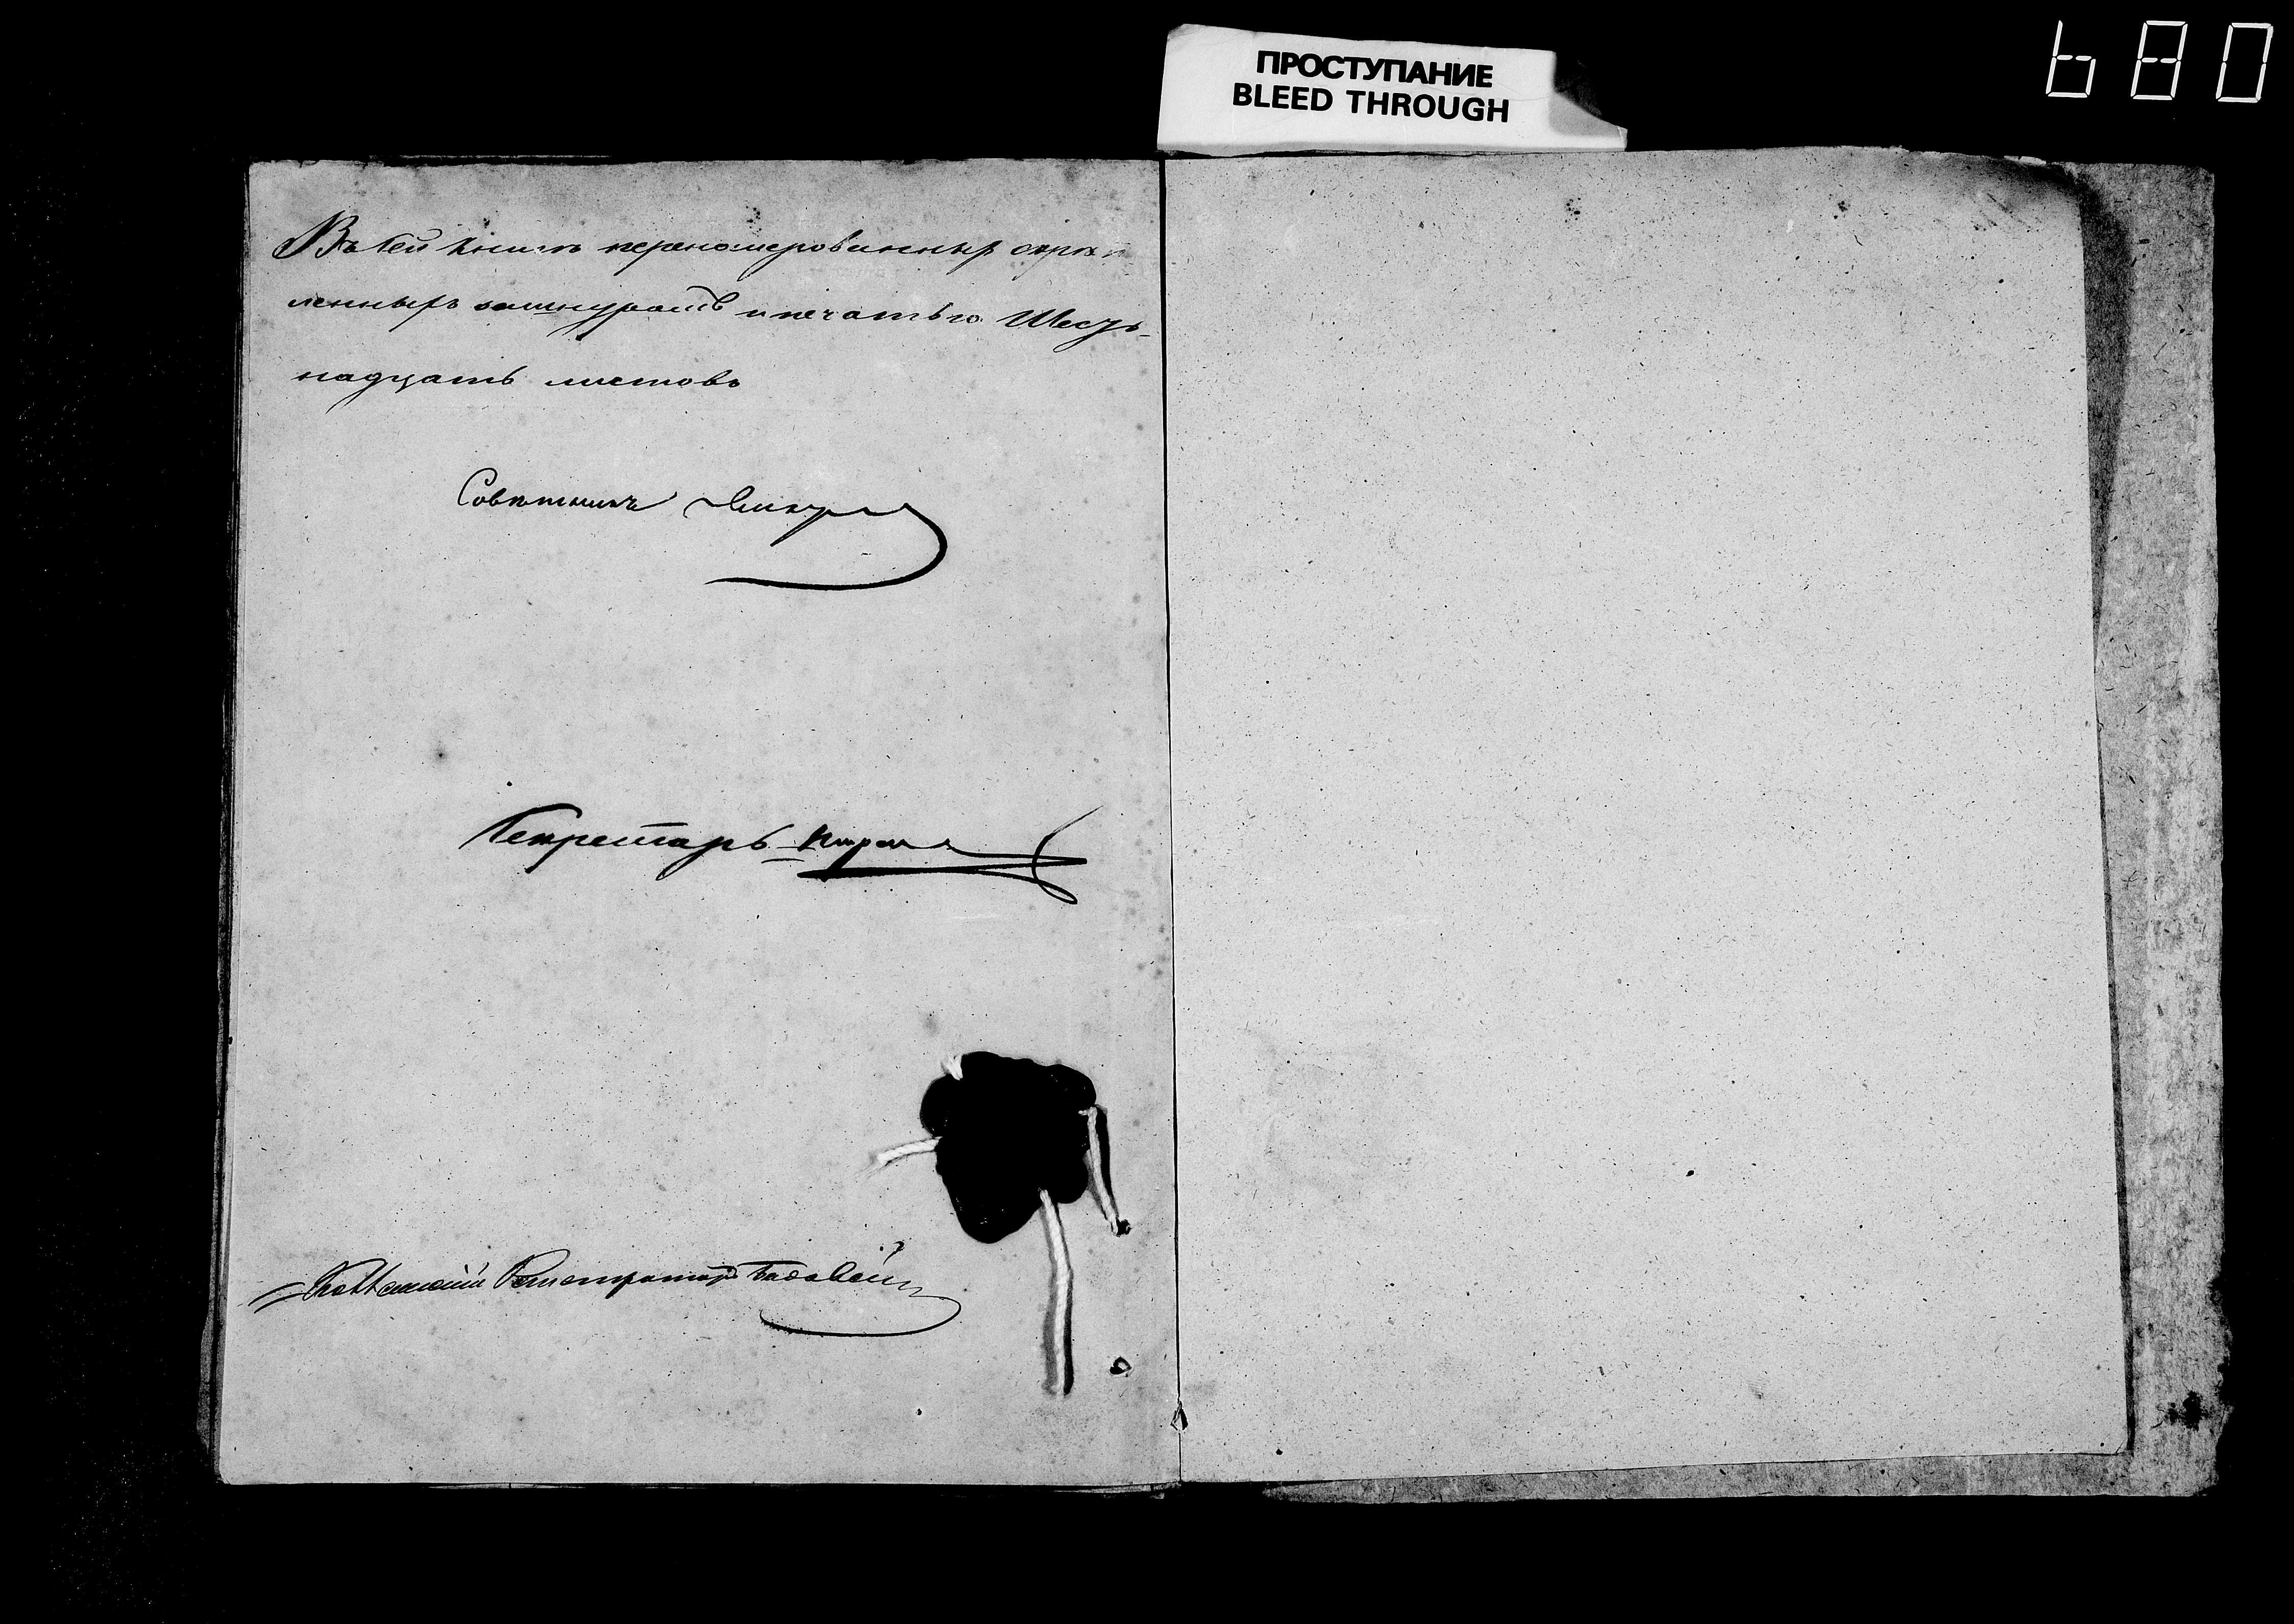 ПРОСТУПАНИЕ
BLEED THROUGH
680
Въ сей книгѣ перенумерованныхъ скрѣп
ленныхъ зашнуромъ и печатью Шесть-
надцать листовъ
Совѣтникъ
Секретарь
Коллежскій Регистраторъ